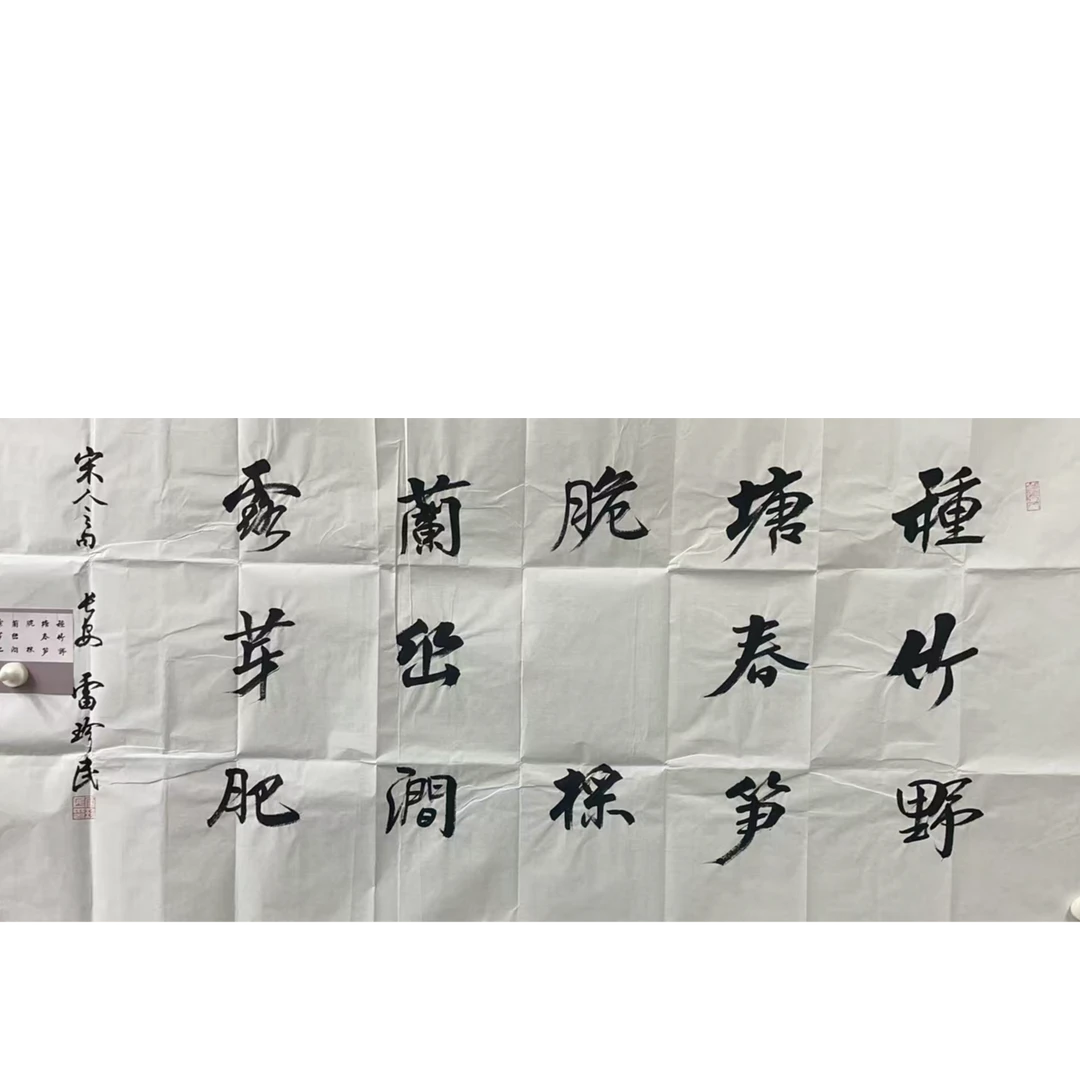 種竹野
塘春笋
脆 採
蘭幽澗
露芽肥
宋人之句 长安 雷珍民